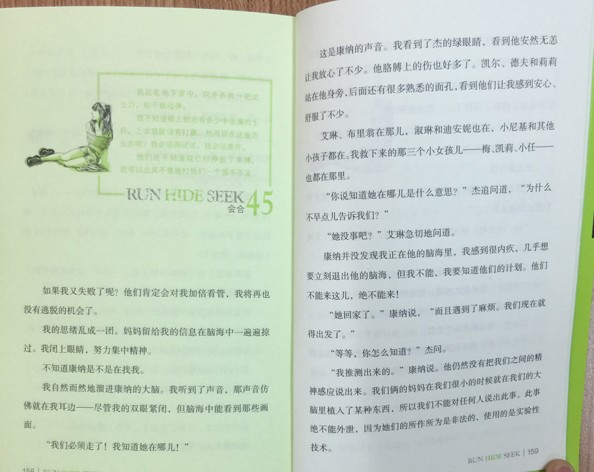 RUN HIDE SEEK 45
会合
如果我又失败了呢?他们肯定会对我加倍看管,我将再也
没有逃脱的机会了。
我的思绪乱成一团。妈妈留给我的信息在脑海中一遍遍掠
过。我闭上眼睛,努力集中精神。
不知道康纳是不是在找我。
我自然而然地溜进康纳的大脑。我听到了声音,那声音仿
佛就在我耳边——尽管我的双眼紧闭,但脑海中能看到那些画
面。
“我们必须走了!我知道她在哪儿!”
这是康纳的声音。我看到了杰的绿眼睛,看到他安然无恙
让我放心了不少。他胳膊上的伤也好多了。凯尔、德夫和莉莉
站在他身旁,后面还有很多熟悉的面孔,看到他们让我感到安心、
舒服了不少。
艾琳、布里翁在那儿,淑琳和迪安妮也在,小尼基和其他
小孩子都在。我救下来的那三个小女孩儿——梅、凯莉、小任——
也都在那里。
“你说知道她在哪儿是什么意思?”杰追问道,“为什么
不早点儿告诉我们?”
“她没事吧?”艾琳急切地问道。
康纳并没发现我正在他的脑海里,我感到很内疚,几乎想
要立刻退出他的脑海,但我不能,我要知道他们的计划。他们
不能来这儿,绝不能来!
“她回家了。”康纳说,“而且遇到了麻烦。我们现在就
得出发了。”
“等等,你怎么知道?”杰问。
“我推测出来的。”康纳说。他仍然没有把我们之间的精
神感应说出来。我们俩的妈妈在我们很小的时候就在我们的大
脑里植入了某种东西,所以我们不能对任何人说出此事。此事
绝不能外泄,因为她们的所作所为是非法的,使用的是实验性
技术。
RUN HIDE SEEK | 159